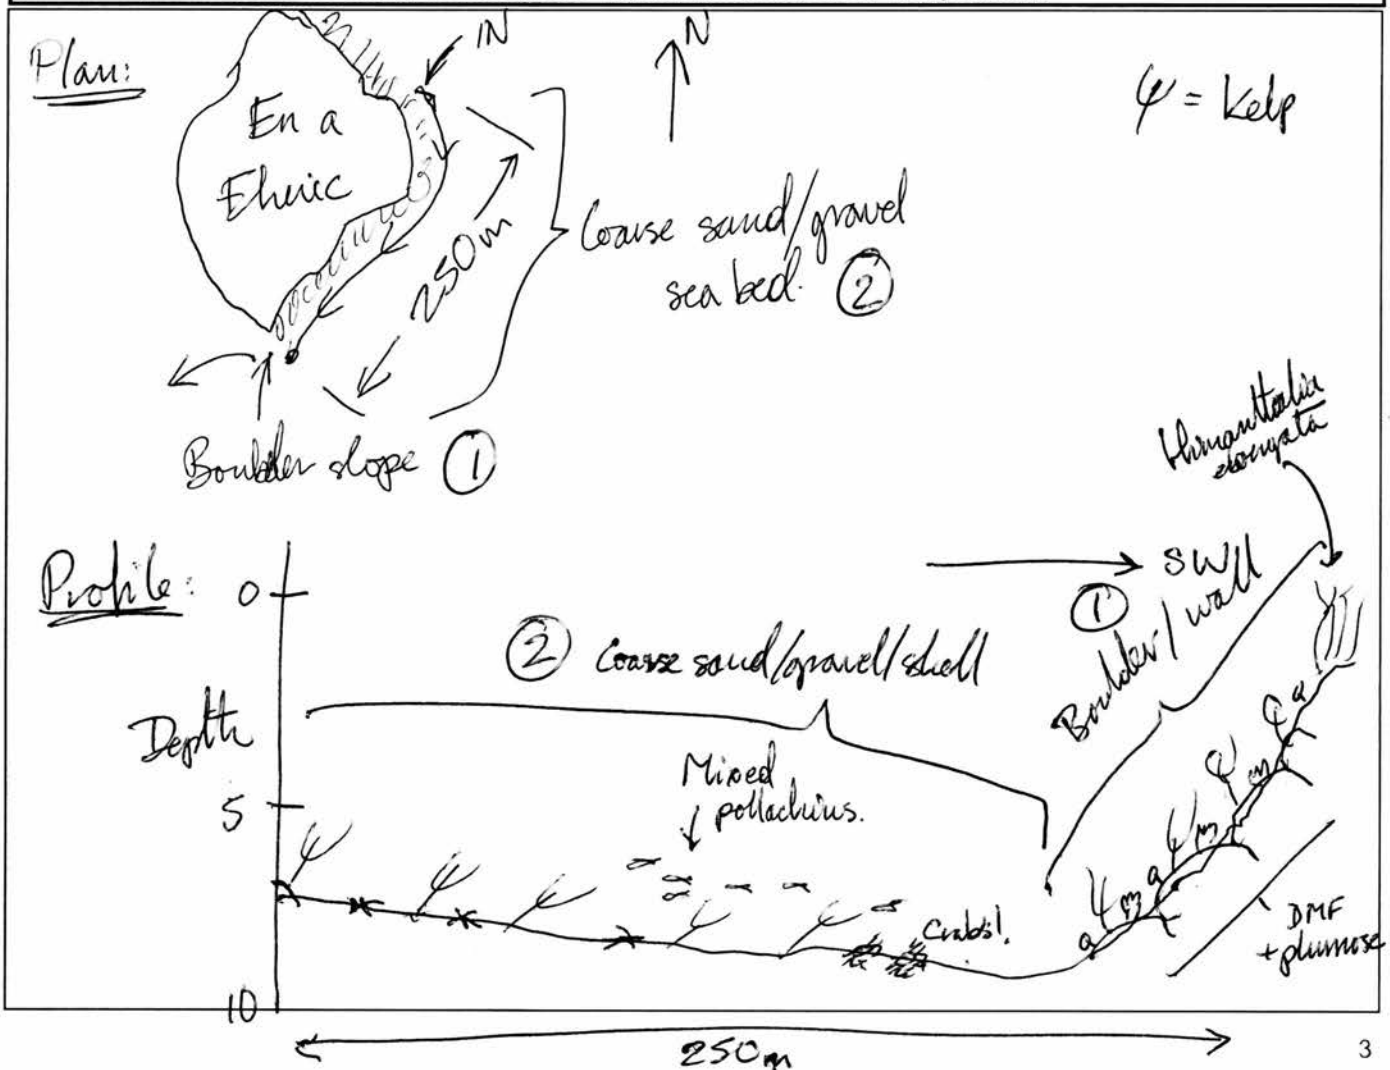 Plan:
IN
N
ψ = Kelp
En a
Ehric
250m
Coarse sand/gravel
sea bed. ②
Boulder slope ①
Himanthalia
elongata
Profile:
0
SW
①
Boulder/wall
② Coarse sand/gravel/shell
Depth
Mixed
pollachius.
5
Crabs!
DMF
+ plumose
10
250m
3